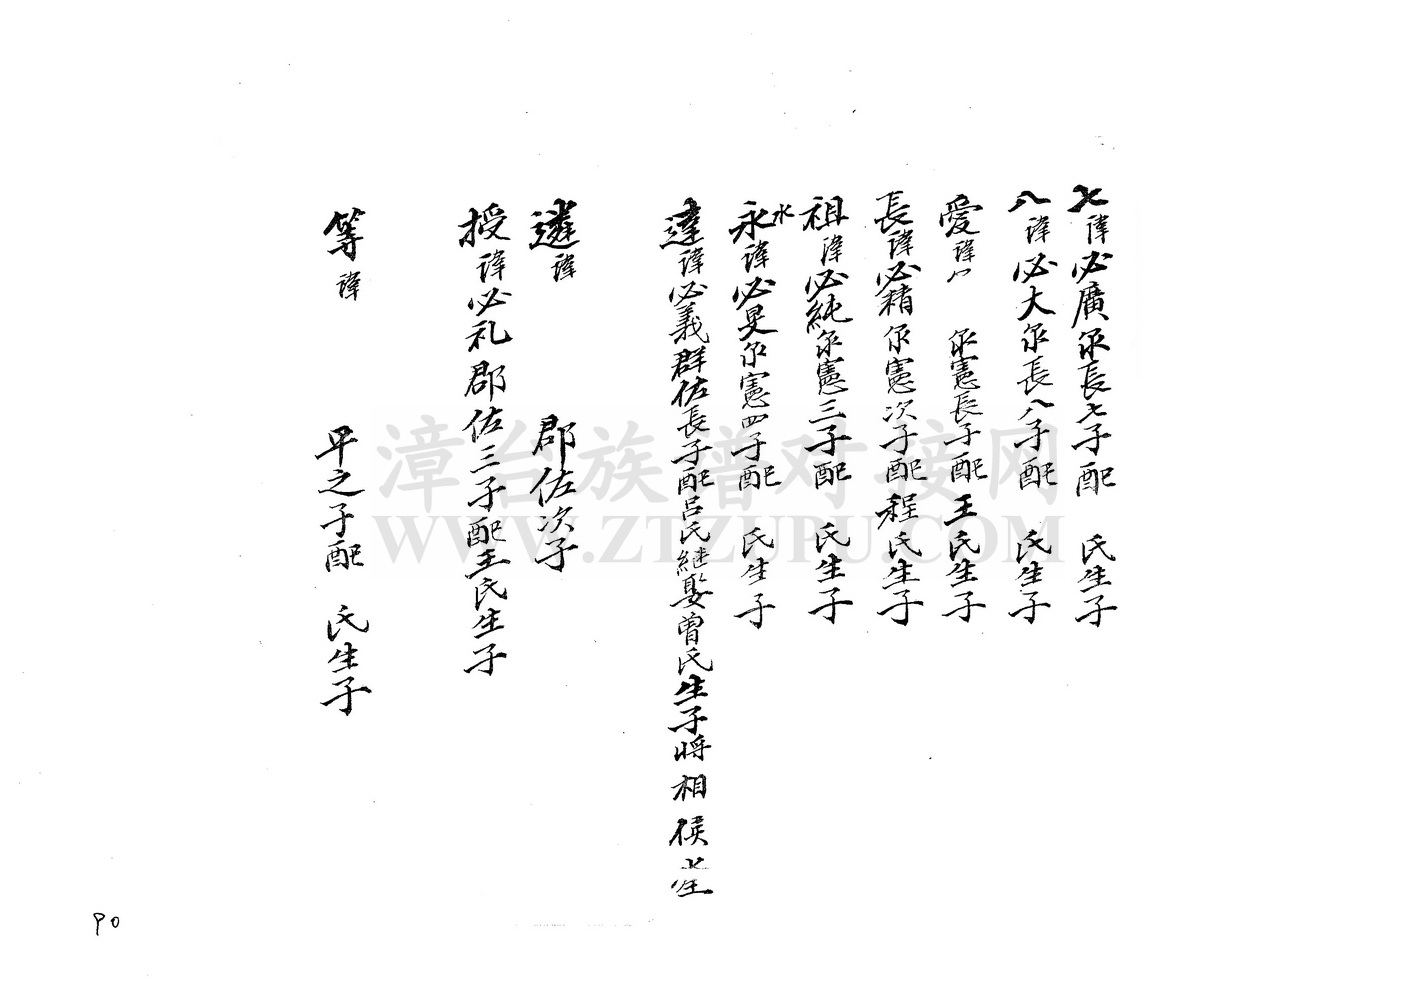 七諱必廣承長七子配 氏生子
八諱必大承長八子配 氏生子
愛諱 承憲長子配王氏生子
長諱必精承憲次子配程氏生子
祖諱必純承憲三子配 氏生子
水
永諱必旻承憲四子配 氏生子
達諱必義群佐長子配呂氏継娶曾氏生子将相侯
遴諱 郡佐次子
授諱必礼郡佐三子配王氏生子
等諱 平之子配 氏生子
90
漳台族谱对接网
WWW.ZTZUPU.COM